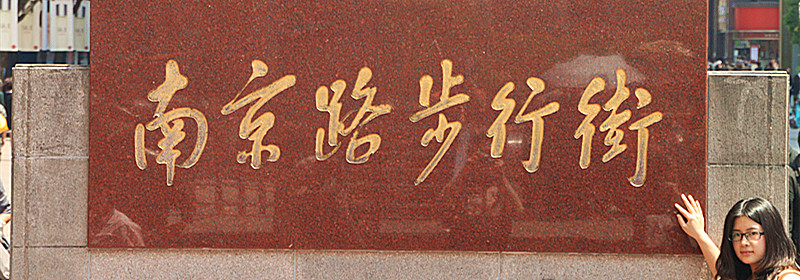 南京路步行街